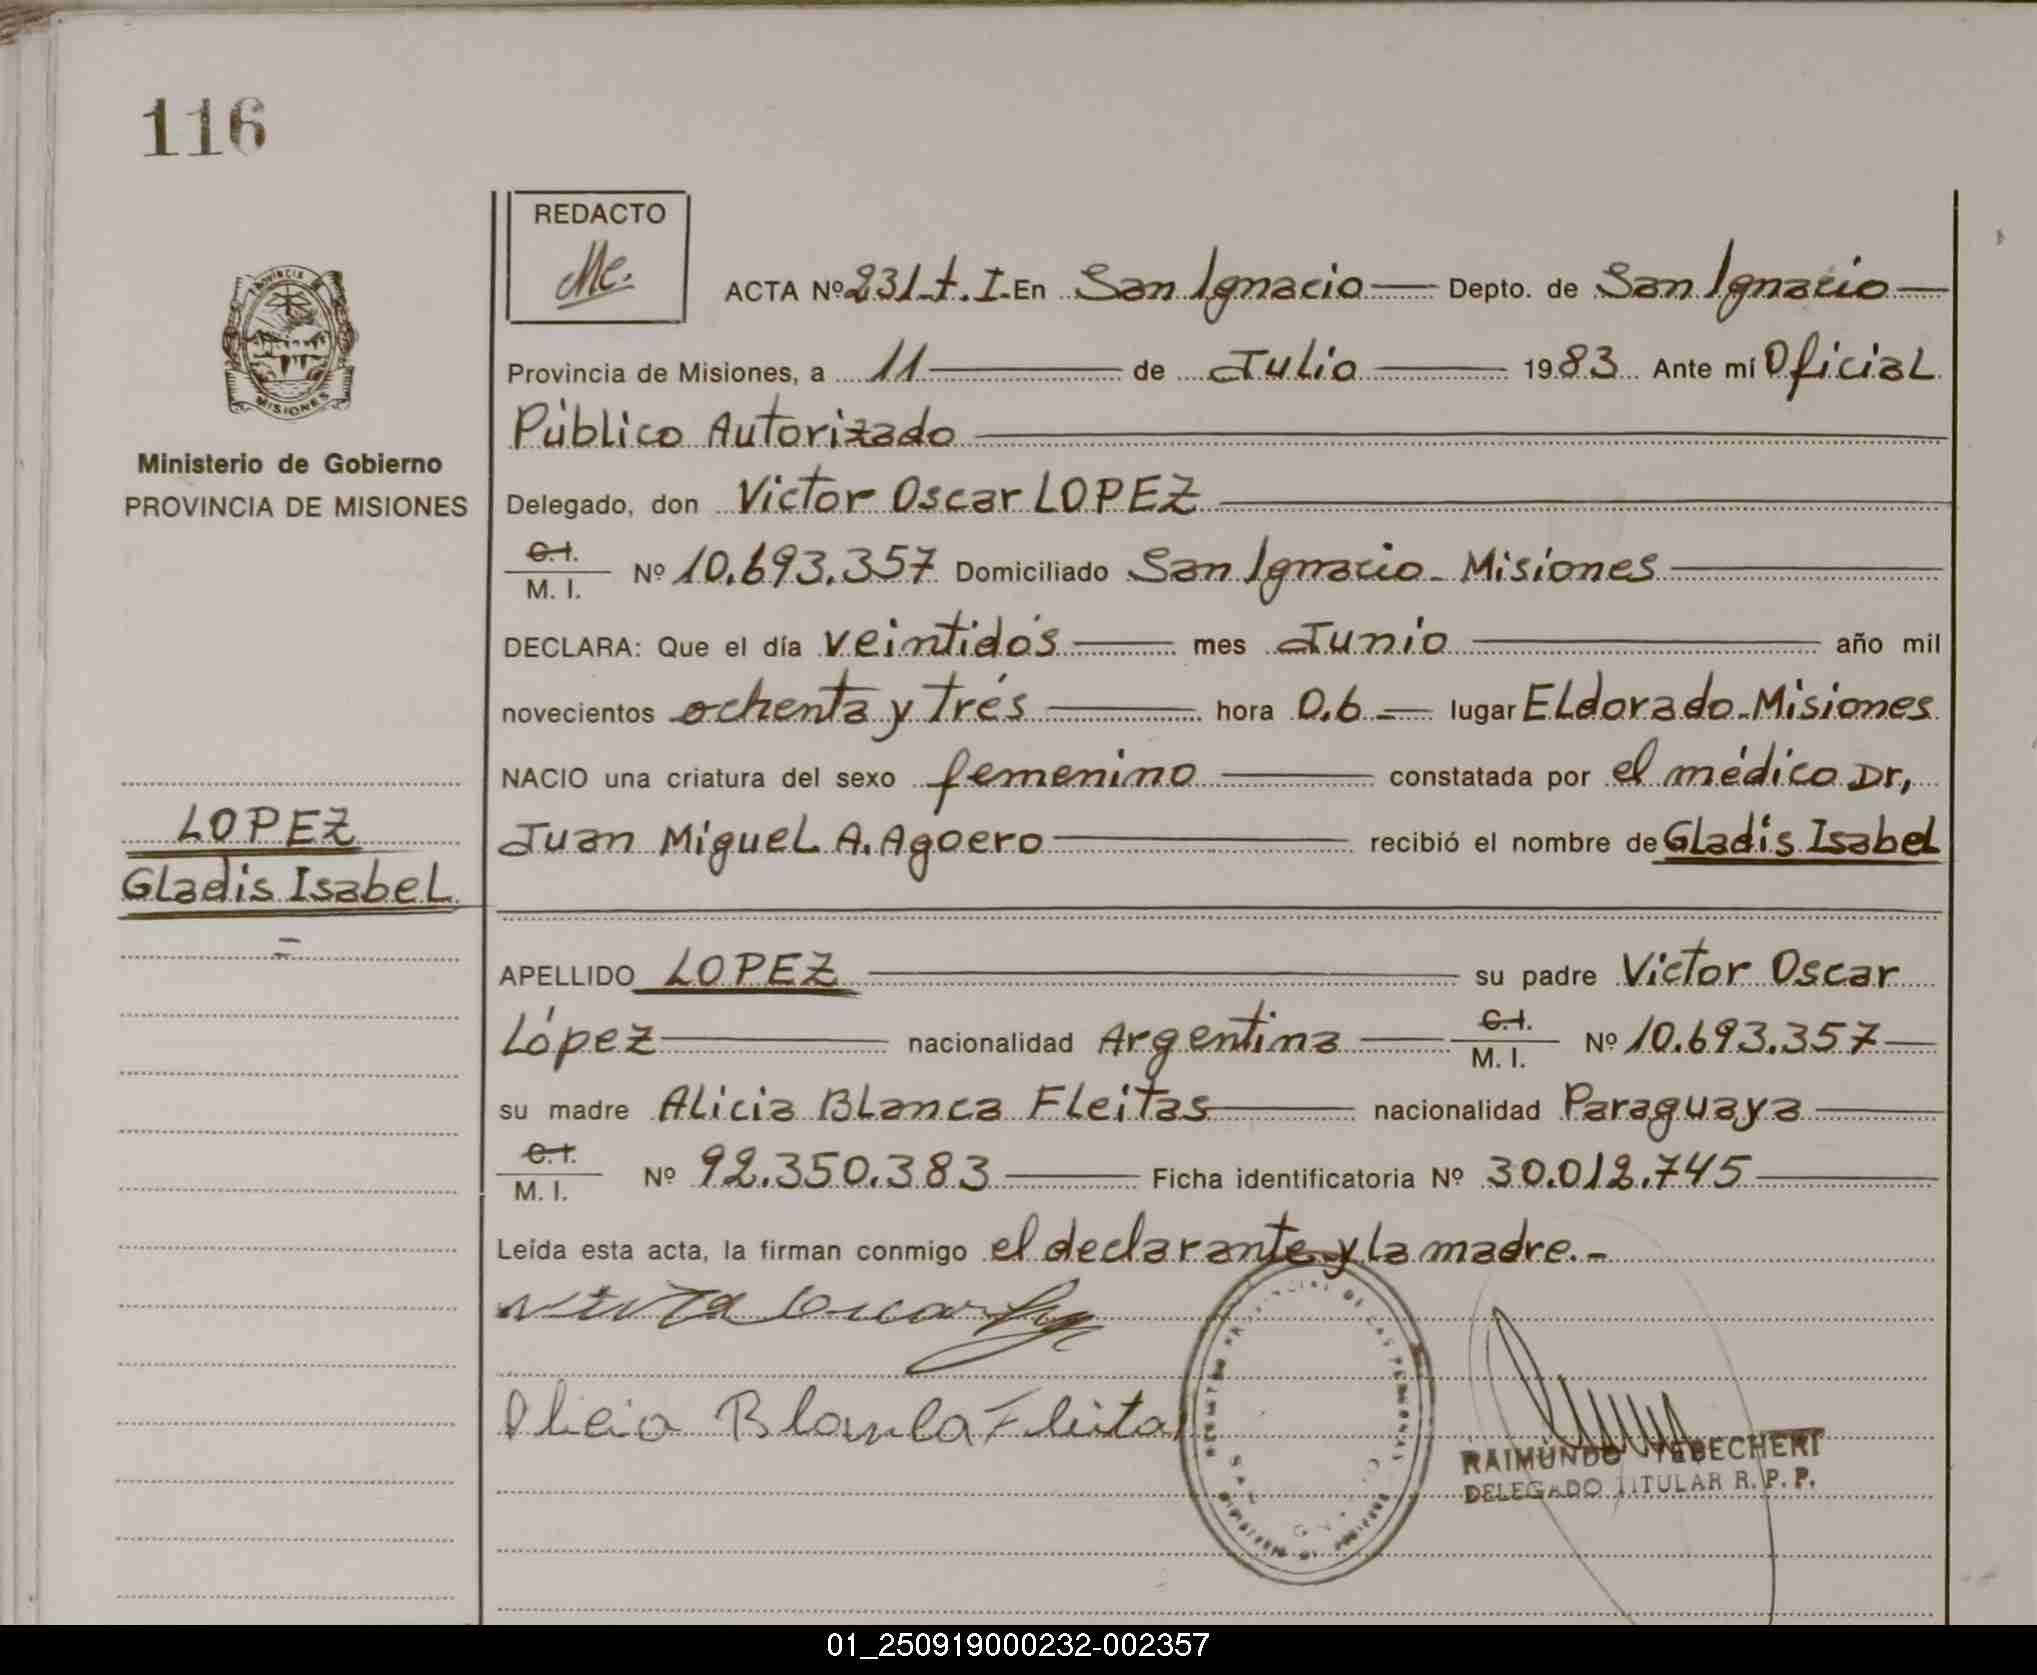 116
REDACTO
Me.
ACTA Nº 231-t. I- En San Ignacio — Depto. de San Ignacio —
PROVINCIA
MISIONES
Provincia de Misiones, a 11 — de Julio — 1983 Ante mí Oficial
Público Autorizado —
Ministerio de Gobierno
PROVINCIA DE MISIONES
Delegado, don Victor Oscar LOPEZ —
C.I.
M. I. Nº 10.693.357 Domiciliado San Ignacio - Misiones —
DECLARA: Que el día veintidós — mes Junio — año mil
novecientos ochenta y trés — hora 0.6 — lugar Eldorado-Misiones
NACIO una criatura del sexo femenino — constatada por el médico Dr,
Juan Miguel A. Agoero — recibió el nombre de Gladis Isabel
LOPEZ
Gladis Isabel
APELLIDO LOPEZ — su padre Victor Oscar
López — nacionalidad Argentina — C.I.
M. I. Nº 10.693.357 —
su madre Alicia Blanca Fleitas — nacionalidad Paraguaya —
C.I.
M. I. Nº 92.350.383 — Ficha identificatoria Nº 30.012.745 —
Leída esta acta, la firman conmigo el declarante y la madre.-
Alicia Blanca Fleitas
DE LAS PERSONAS
RAIMUNDO YEBECHERI
DELEGADO TITULAR R. P. P.
01_250919000232-002357